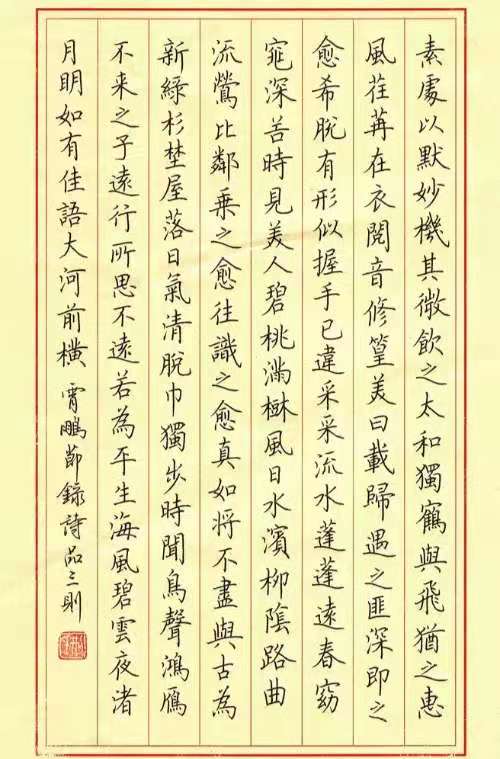 素處以默妙機其微飲之太和獨鶴與飛猶之惠
風荏苒在衣閱音修篁美曰載歸遇之匪深即之
愈希脫有形似握手已違采采流水蓬蓬遠春窈
窕深苦時見美人碧桃滿樹風日水濱柳陰路曲
流鶯比鄰乘之愈往識之愈真如將不盡與古為
新綠杉埜屋落日氣清脫巾獨步時聞鳥聲鴻雁
不来之子遠行所思不遠若為平生海風碧雲夜渚
月明如有佳語大河前橫 霄鵬節錄詩品三則